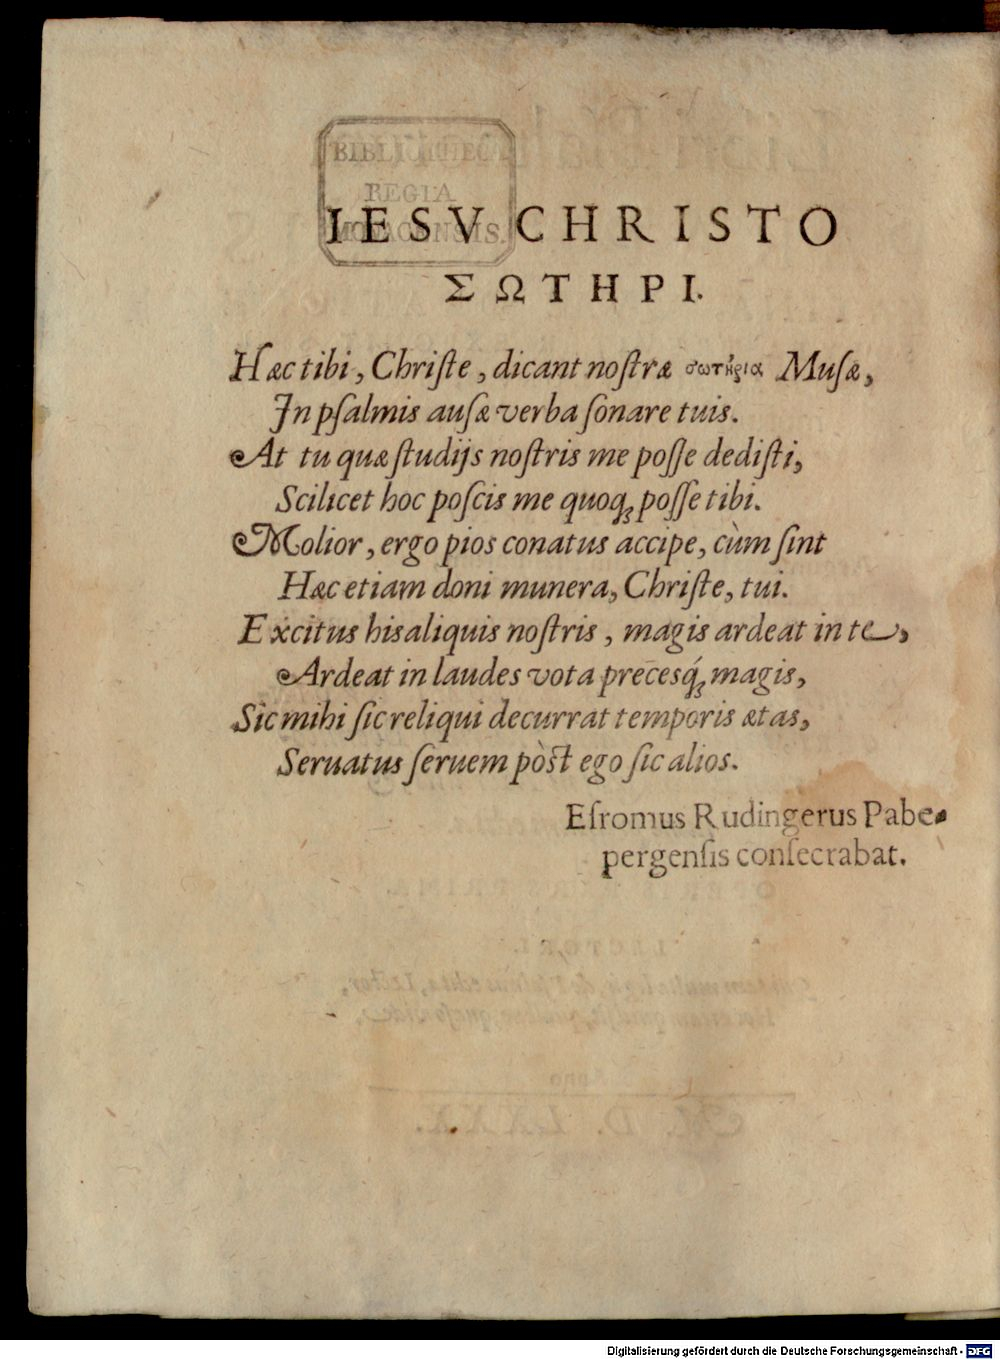 BIBLIOTHECA
REGIA
MONACENSIS.
IESV CHRISTO
ΣΩΤΗΡΙ.
Hæc tibi, Christe, dicant nostræ σωτήρια Musæ,
In psalmis ausæ verba sonare tuis.
At tu quæ studijs nostris me posse dedisti,
Scilicet hoc poscis me quoq; posse tibi.
Molior, ergo pios conatus accipe, cùm sint
Hæc etiam doni munera, Christe, tui.
Excitus his aliquis nostris, magis ardeat in te,
Ardeat in laudes vota precesq́; magis,
Sic mihi sic reliqui decurrat temporis ætas,
Seruatus seruem pòst ego sic alios.
Esromus Rudingerus Pabe-
pergensis consecrabat.
Digitalisierung gefördert durch die Deutsche Forschungsgemeinschaft - DFG